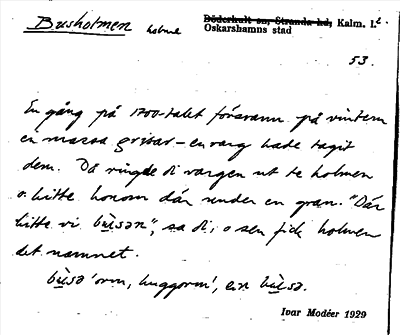 Busholmen holme
Döderhult sn, Stranda hd, Kalm. L.
Oskarshamns stad
53.
En gång på 1700-talet försvann på vintern
en massa grisar – en varg hade tagit
dem. Då ringde di vargen ut te holmen
o. hitte honom där under en gran. "Där
hitte vi bùsən", sa di, o sen fick holmen
det namnet.
bùsə 'orm, huggorm', en bùsə.
Ivar Modéer 1929